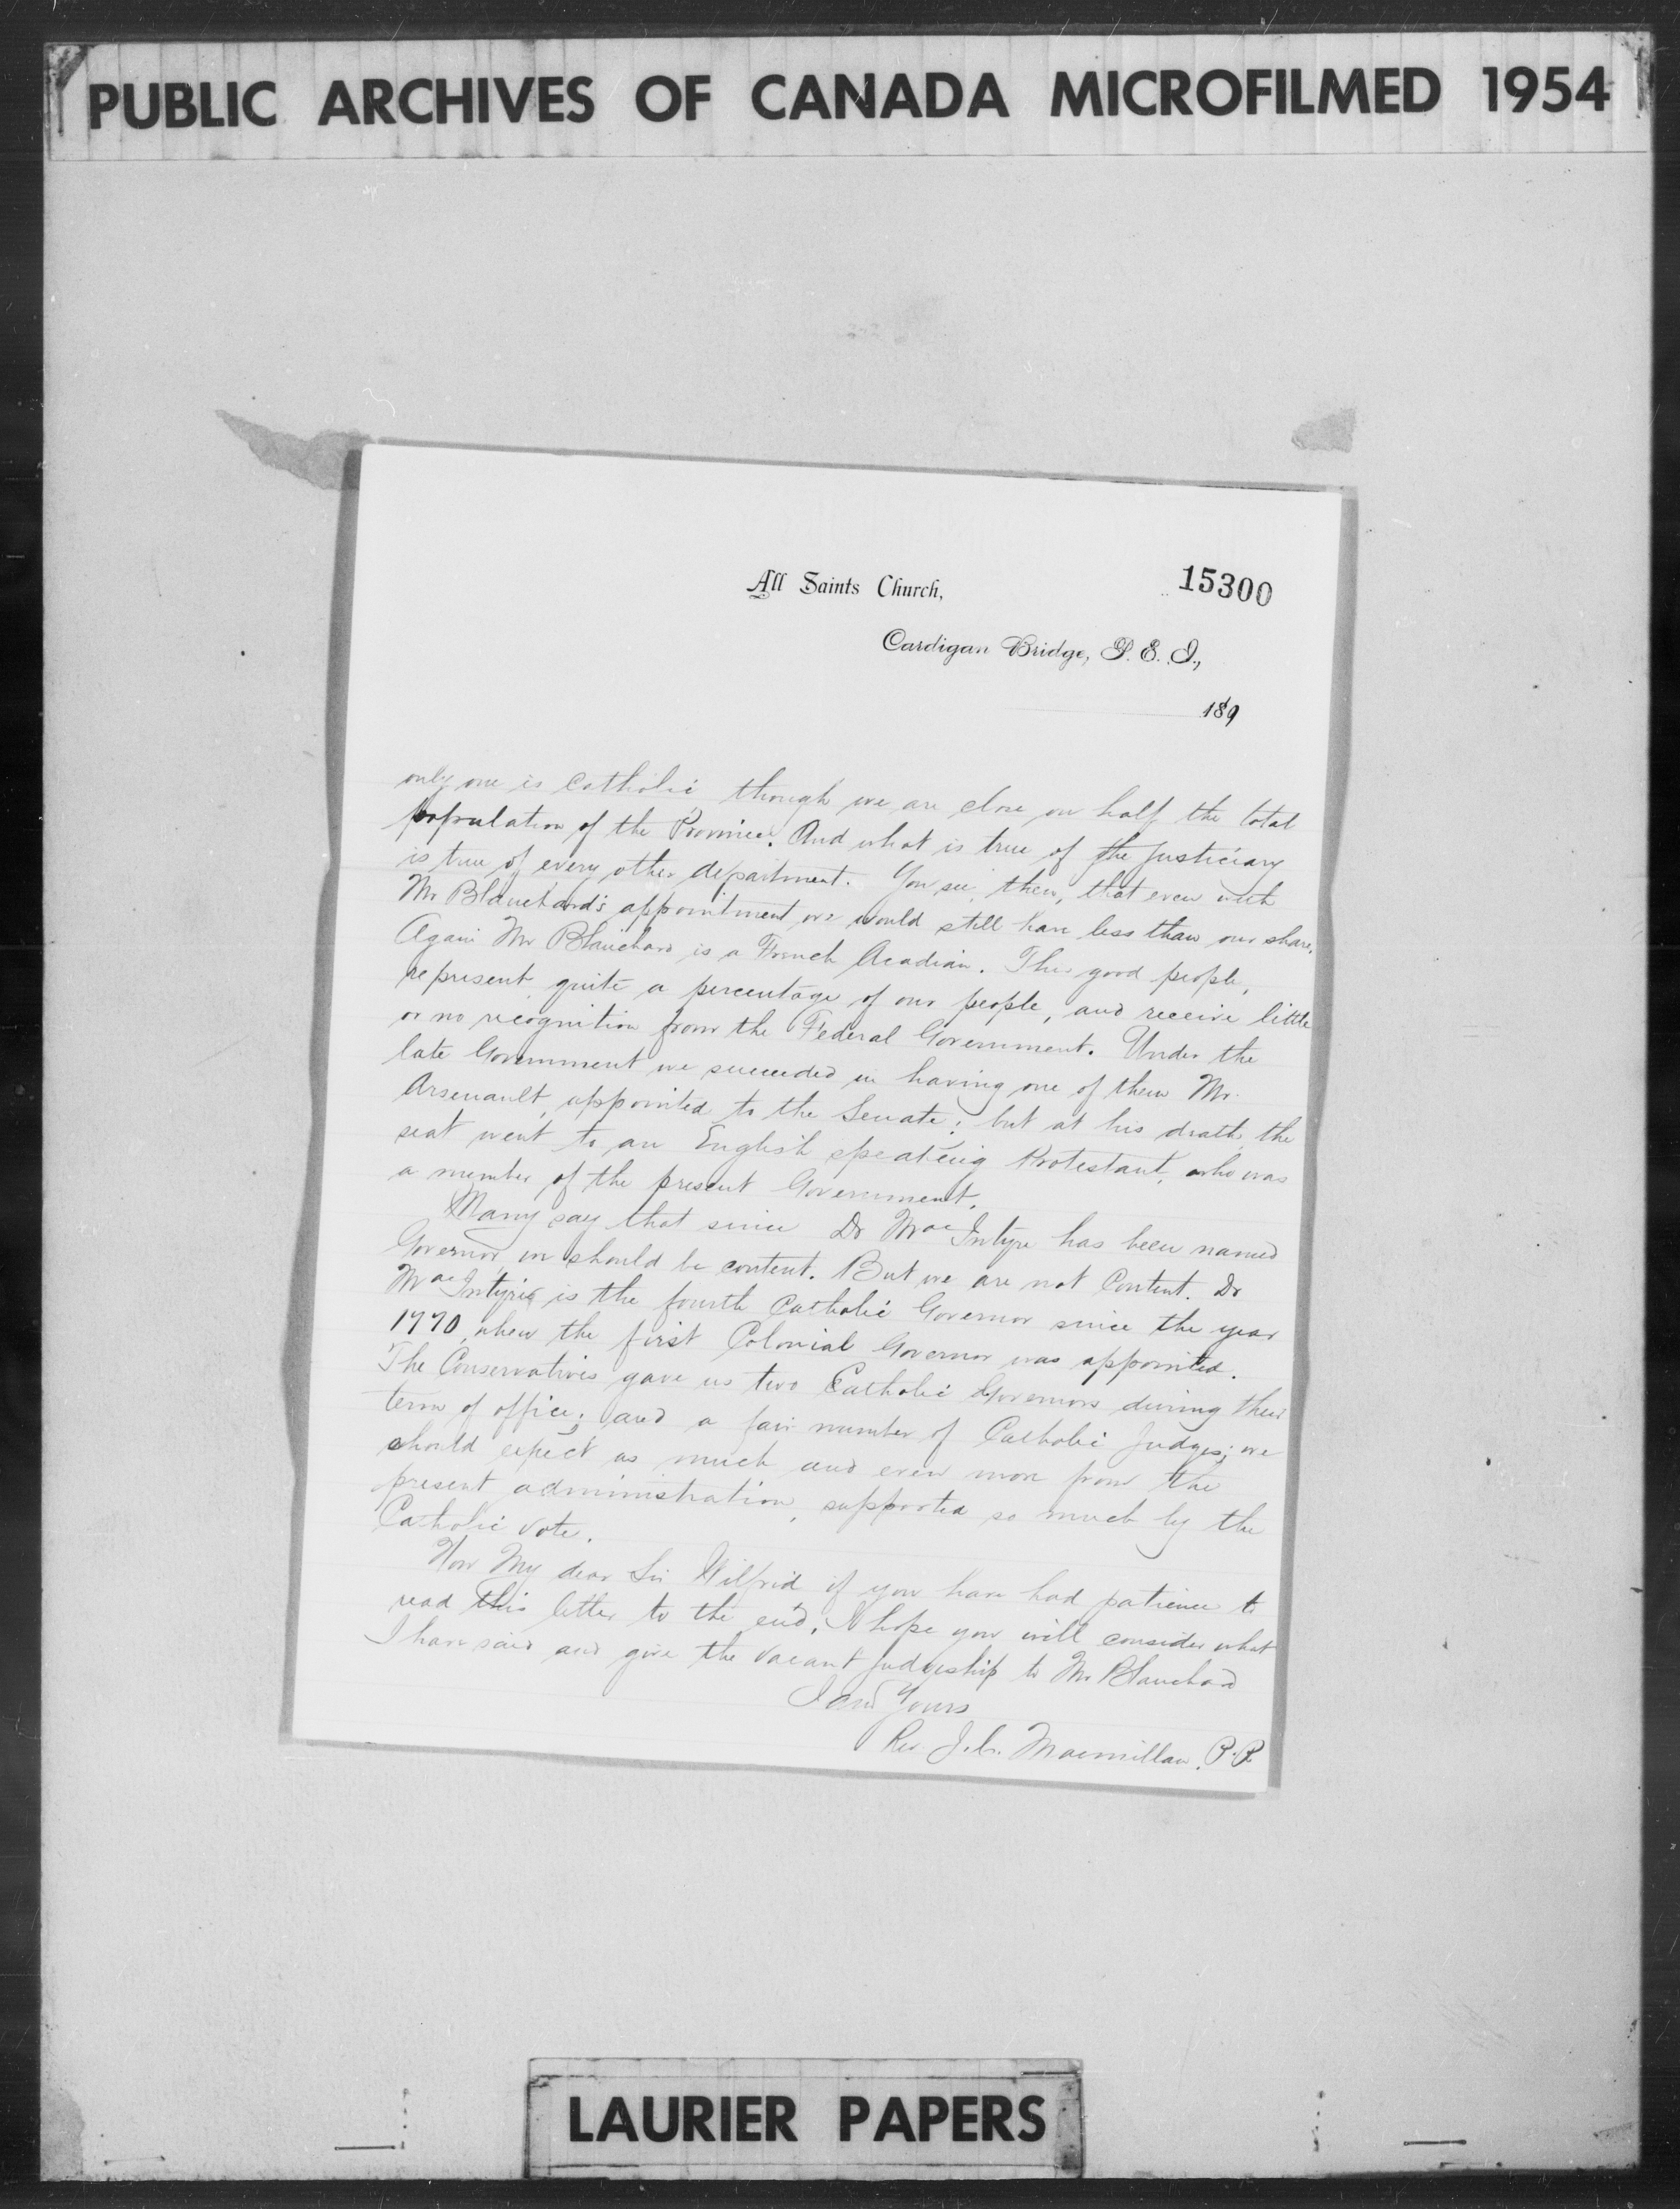 PUBLIC ARCHIVES OF CANADA MICROFILMED 1954
All Saints Church,
15300
Cardigan Bridge, P. E. I.,
189
only one is Catholic, though we are close on half the total
population of the Province. And what is true of the Justiciary
is true of every other department. You see, then, that even with
Mr Blanchard's appointment we would still have less than our share.
Again Mr Blanchard is a French Acadian. This good people,
represent quite a percentage of our people, and receive little
or no recognition from the Federal Government. Under the
late Government we succeeded in having one of them Mr.
Arsenault, appointed to the Senate; but at his death, the
seat went to an English speaking Protestant, who was
a member of the present Government.
Many say that since Dr MacIntyre has been named
Governor, we should be content. But we are not Content. Dr
MacIntyre is the fourth Catholic Governor since the year
1770, when the first Colonial Governor was appointed.
The Conservatives gave us two Catholic Governors during their
term of office; and a fair number of Catholic Judges; we
should expect as much and even more from the
present administration, supported so much by the
Catholic vote.
Now My dear Sir Wilfrid if you have had patience to
read this letter to the end, I hope you will consider what
I have said and give the vacant Judgeship to Mr Blanchard
I am Yours
Rev J.C. Macmillan. P.P.
LAURIER PAPERS